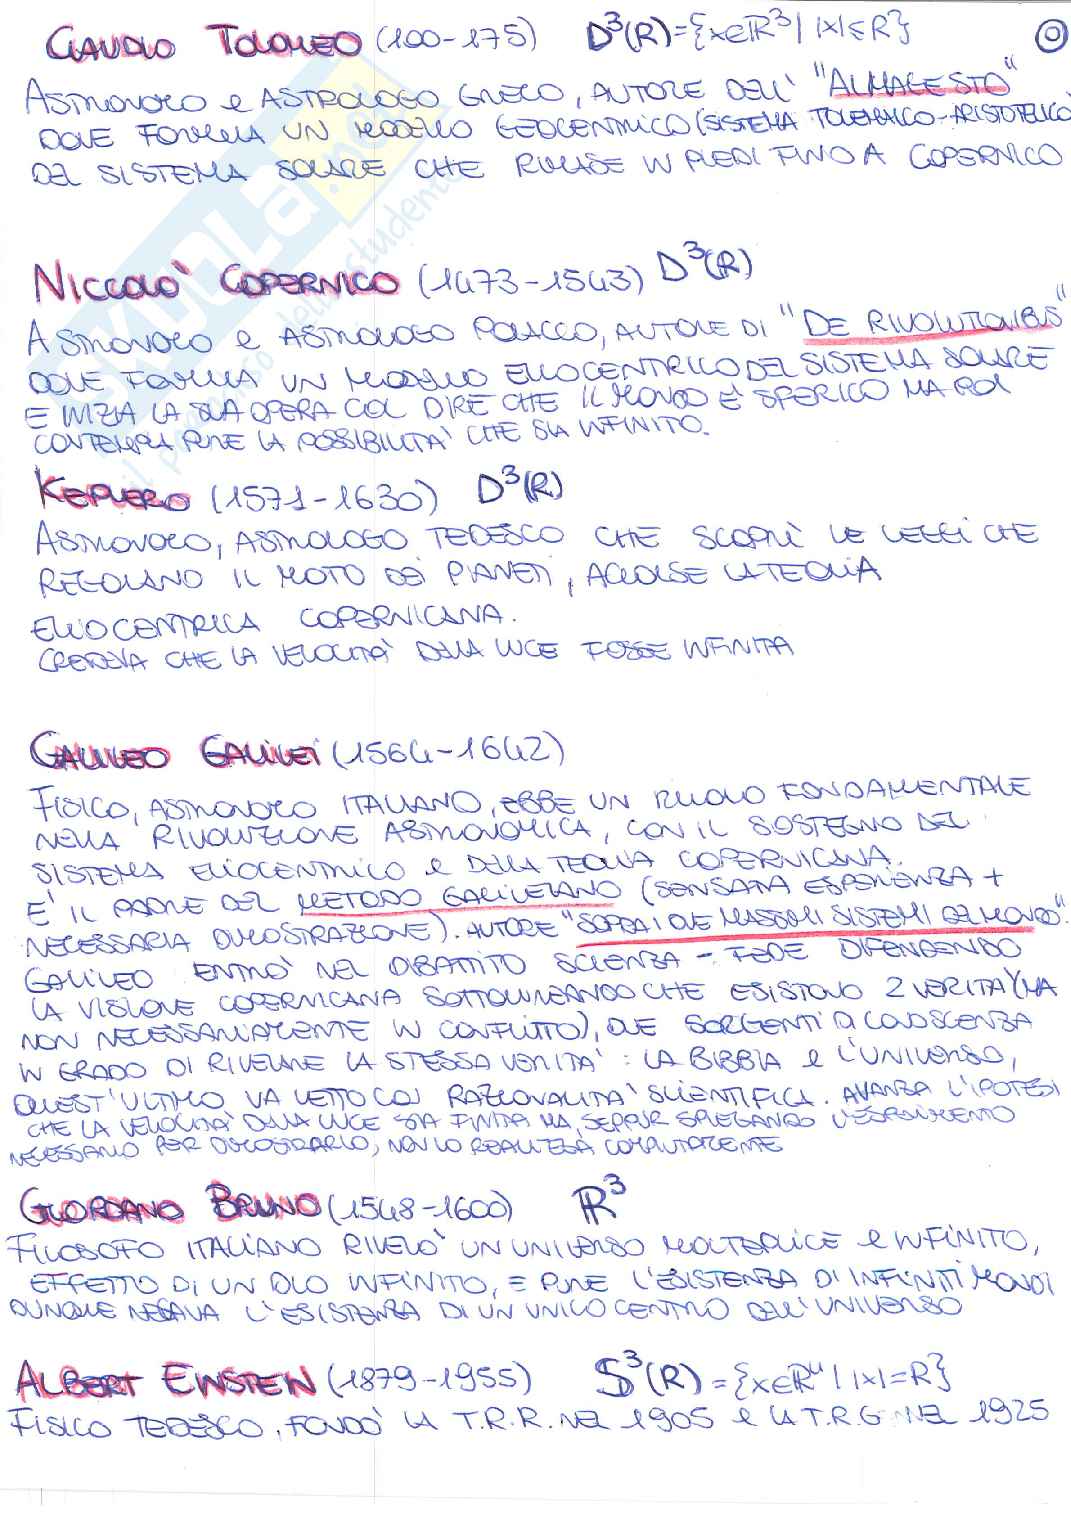 CLAUDIO TOLOMEO (100-175) D³(R)={x∈ℝ³| |x|≤R} 0
ASTRONOMO e ASTROLOGO GRECO, AUTORE DELL' "ALMAGESTO"
DOVE FORMULA UN MODELLO GEOCENTRICO (SISTEMA TOLEMAICO-ARISTOTELICO
DEL SISTEMA SOLARE CHE RIMASE IN PIEDI FINO A COPERNICO
NICCOLO' COPERNICO (1473-1543) D³(R)
ASTRONOMO e ASTROLOGO POLACCO, AUTORE DI "DE RIVOLUTIONIBUS"
DOVE FORMULA UN MODELLO ELIOCENTRICO DEL SISTEMA SOLARE
E INIZIA LA SUA OPERA COL DIRE CHE IL MONDO E' SFERICO MA POI
CONTEMPLA PURE LA POSSIBILITA' CHE SIA INFINITO.
KEPLERO (1571-1630) D³(R)
ASTRONOMO, ASTROLOGO TEDESCO CHE SCOPRI' LE LEGGI CHE
REGOLANO IL MOTO DEI PIANETI, ACCOLSE LA TEORIA
ELIOCENTRICA COPERNICANA.
CREDEVA CHE LA VELOCITA' DELLA LUCE FOSSE INFINITA
GALILEO GALILEI (1564-1642)
FISICO, ASTRONOMO ITALIANO, EBBE UN RUOLO FONDAMENTALE
NELLA RIVOLUZIONE ASTRONOMICA, CON IL SOSTEGNO DEL
SISTEMA ELIOCENTRICO e DELLA TEORIA COPERNICANA.
E' IL PADRE DEL METODO GALILEIANO (SENSATA ESPERIENZA +
NECESSARIA DIMOSTRAZIONE). AUTORE "SOPRA I DUE MASSIMI SISTEMI DEL MONDO".
GALILEO ENTRO' NEL DIBATTITO SCIENZA - FEDE DIFENDENDO
LA VISIONE COPERNICANA SOTTOLINEANDO CHE ESISTONO 2 VERITA' (MA
NON NECESSARIAMENTE IN CONFLITTO), DUE SORGENTI DI CONOSCENZA
IN GRADO DI RIVELARE LA STESSA VERITA': LA BIBBIA e L'UNIVERSO,
QUEST'ULTIMO VA LETTO CON RAZIONALITA' SCIENTIFICA. AVANZA L'IPOTESI
CHE LA VELOCITA' DELLA LUCE SIA FINITA MA, SEPPUR SPIEGANDO L'ESPERIMENTO
NECESSARIO PER DIMOSTRARLO, NON LO REALIZZA COMPIUTAMENTE
GIORDANO BRUNO (1548-1600) ℝ³
FILOSOFO ITALIANO RIVELO' UN UNIVERSO MOLTEPLICE e INFINITO,
EFFETTO DI UN DIO INFINITO, E PURE L'ESISTENZA DI INFINITI MONDI
DUNQUE NEGAVA L'ESISTENZA DI UN UNICO CENTRO DELL'UNIVERSO
ALBERT EINSTEIN (1879-1955) S³(R)={x∈ℝ⁴| |x|=R}
FISICO TEDESCO, FONDO' LA T.R.R. NEL 1905 E LA T.R.G NEL 1925
SKUOLA.net
il paradiso dello studente